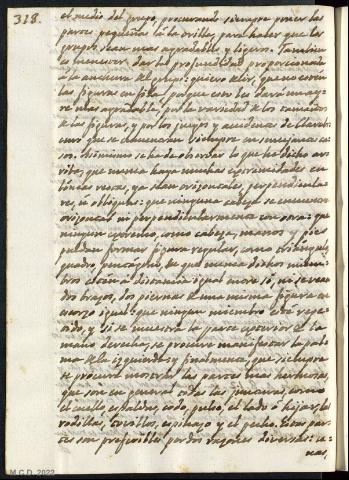 318.
el medio del grupo, procurando siempre poner las
partes pequeñas á la orilla, para hacer que los
grupos sean mas agradables, y ligeros. Tambien
es menester dar la profundidad proporcionada
á la anchura del grupo: quiero decir, que no esten
las figuras en fila, porque esto les dará mayor
ser mas agradable por la variedad de los tamaños
de las figuras, y por los juegos y accidentes de Claroobs
curo que se encuentran siempre en semejantes ca
sos. Asimismo se ha de observar lo que he dicho ar
riba, que nunca haya muchas extremidades en
líneas rectas, ya sean orizontales, perpendicula
res, ú obliquas: que ninguna cabeza se encuentre
orizontal ni perpendicularmente con otra: que
ningun extremo, como cabeza, manos y pies
puedan formar figura regular, como triángulo,
quadro, pentágono, &c. que nunca dichos miem
bros esten á distancia igual entre sí, ni se vean
dos brazos, dos piernas de una misma figura en
escorzo igual: que ningun miembro esté repe
tido, y si se muestra la parte exterior de la
mano derecha, se procure manifestar la palma
de la izquierda; y finalmente, que siempre
se procure mostrar las partes mas hermosas,
que son en general todas las junturas como
el cuello, espaldas, codo, pulso, el lado ó hijar, las
rodillas, tovillos, espinazo y el pecho. Estas par
tes son preferibles por dos razones diversas: u-
nas,
M.C.D. 2022